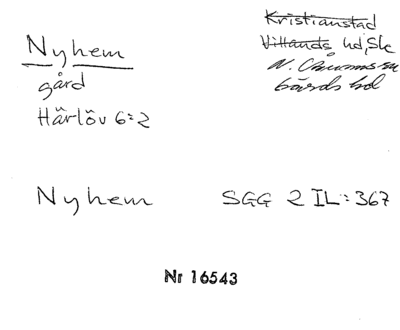 Nyhem
gård
Härlöv 6:2
Kristianstad
Villands hd, Sk
N. Åsums sn
Gärds hd
Nyhem SGG 2 IL:367
Nr 16543